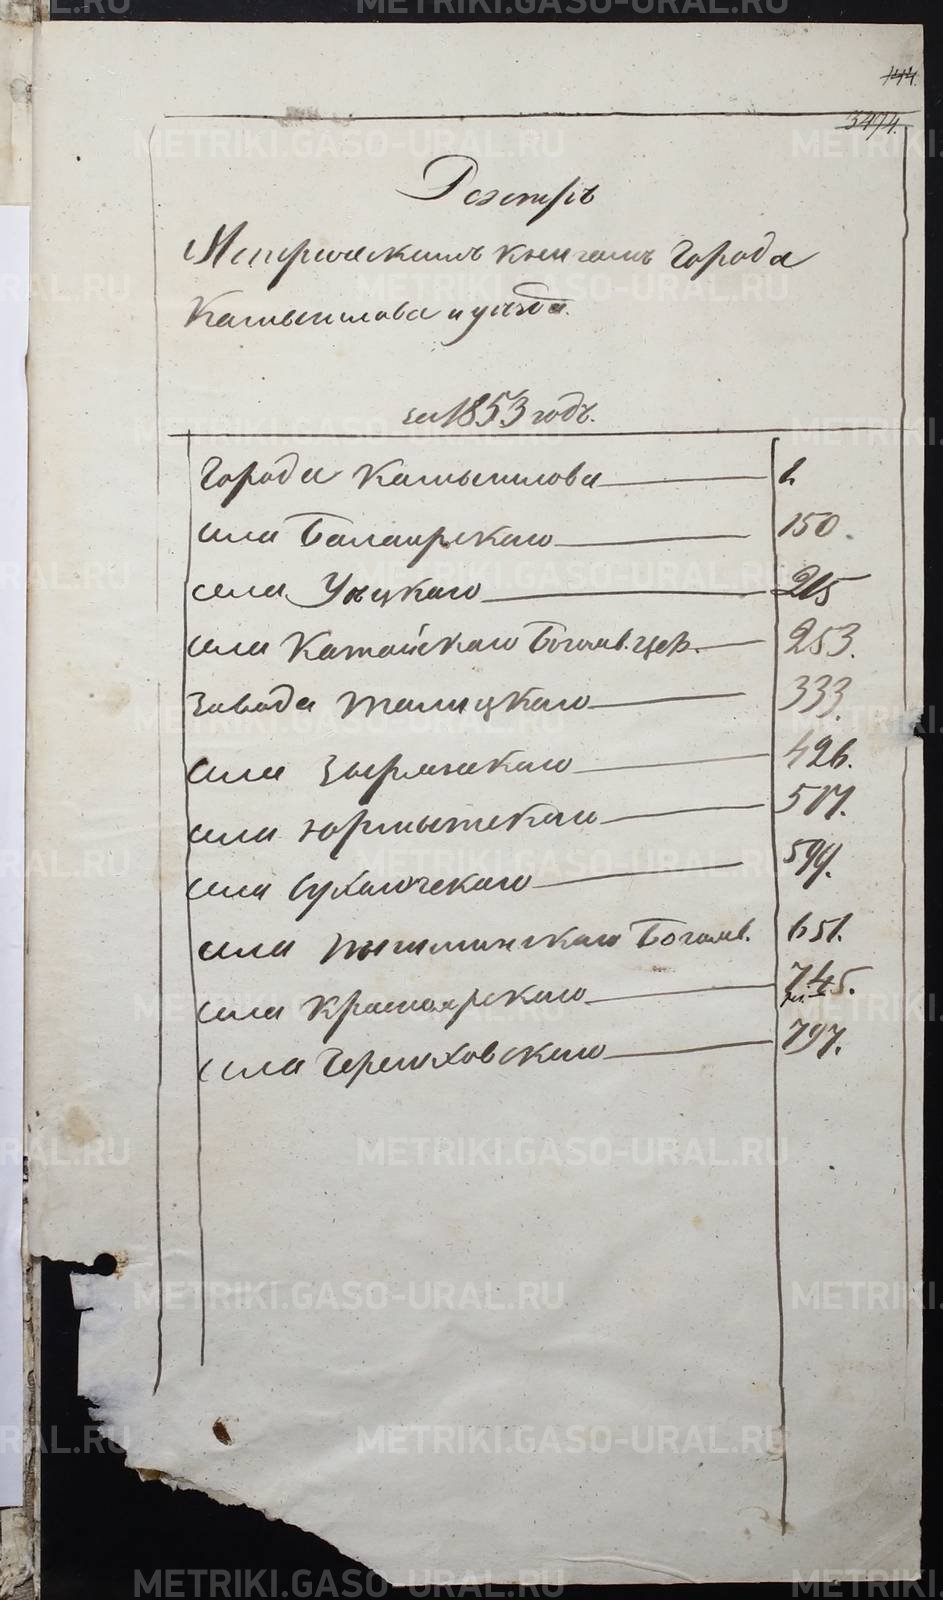 144.
3474.
Реэстръ
Метрическимъ книгамъ города
Камышлова и уѣзда.
за 1853 годъ.
Города Камышлова 1
села Балаирскаго 150.
села Уецкаго 215
села Катайскаго Богояв. цер. 253.
завода Талицкаго 333.
села Зырянскаго 426.
села Юрмытскаго 517.
села Сухоложскаго 599.
села Пышминскаго Богояв. 651.
села Красноярскаго 745.
села Черемховскаго 797.
METRIKI.GASO-URAL.RU